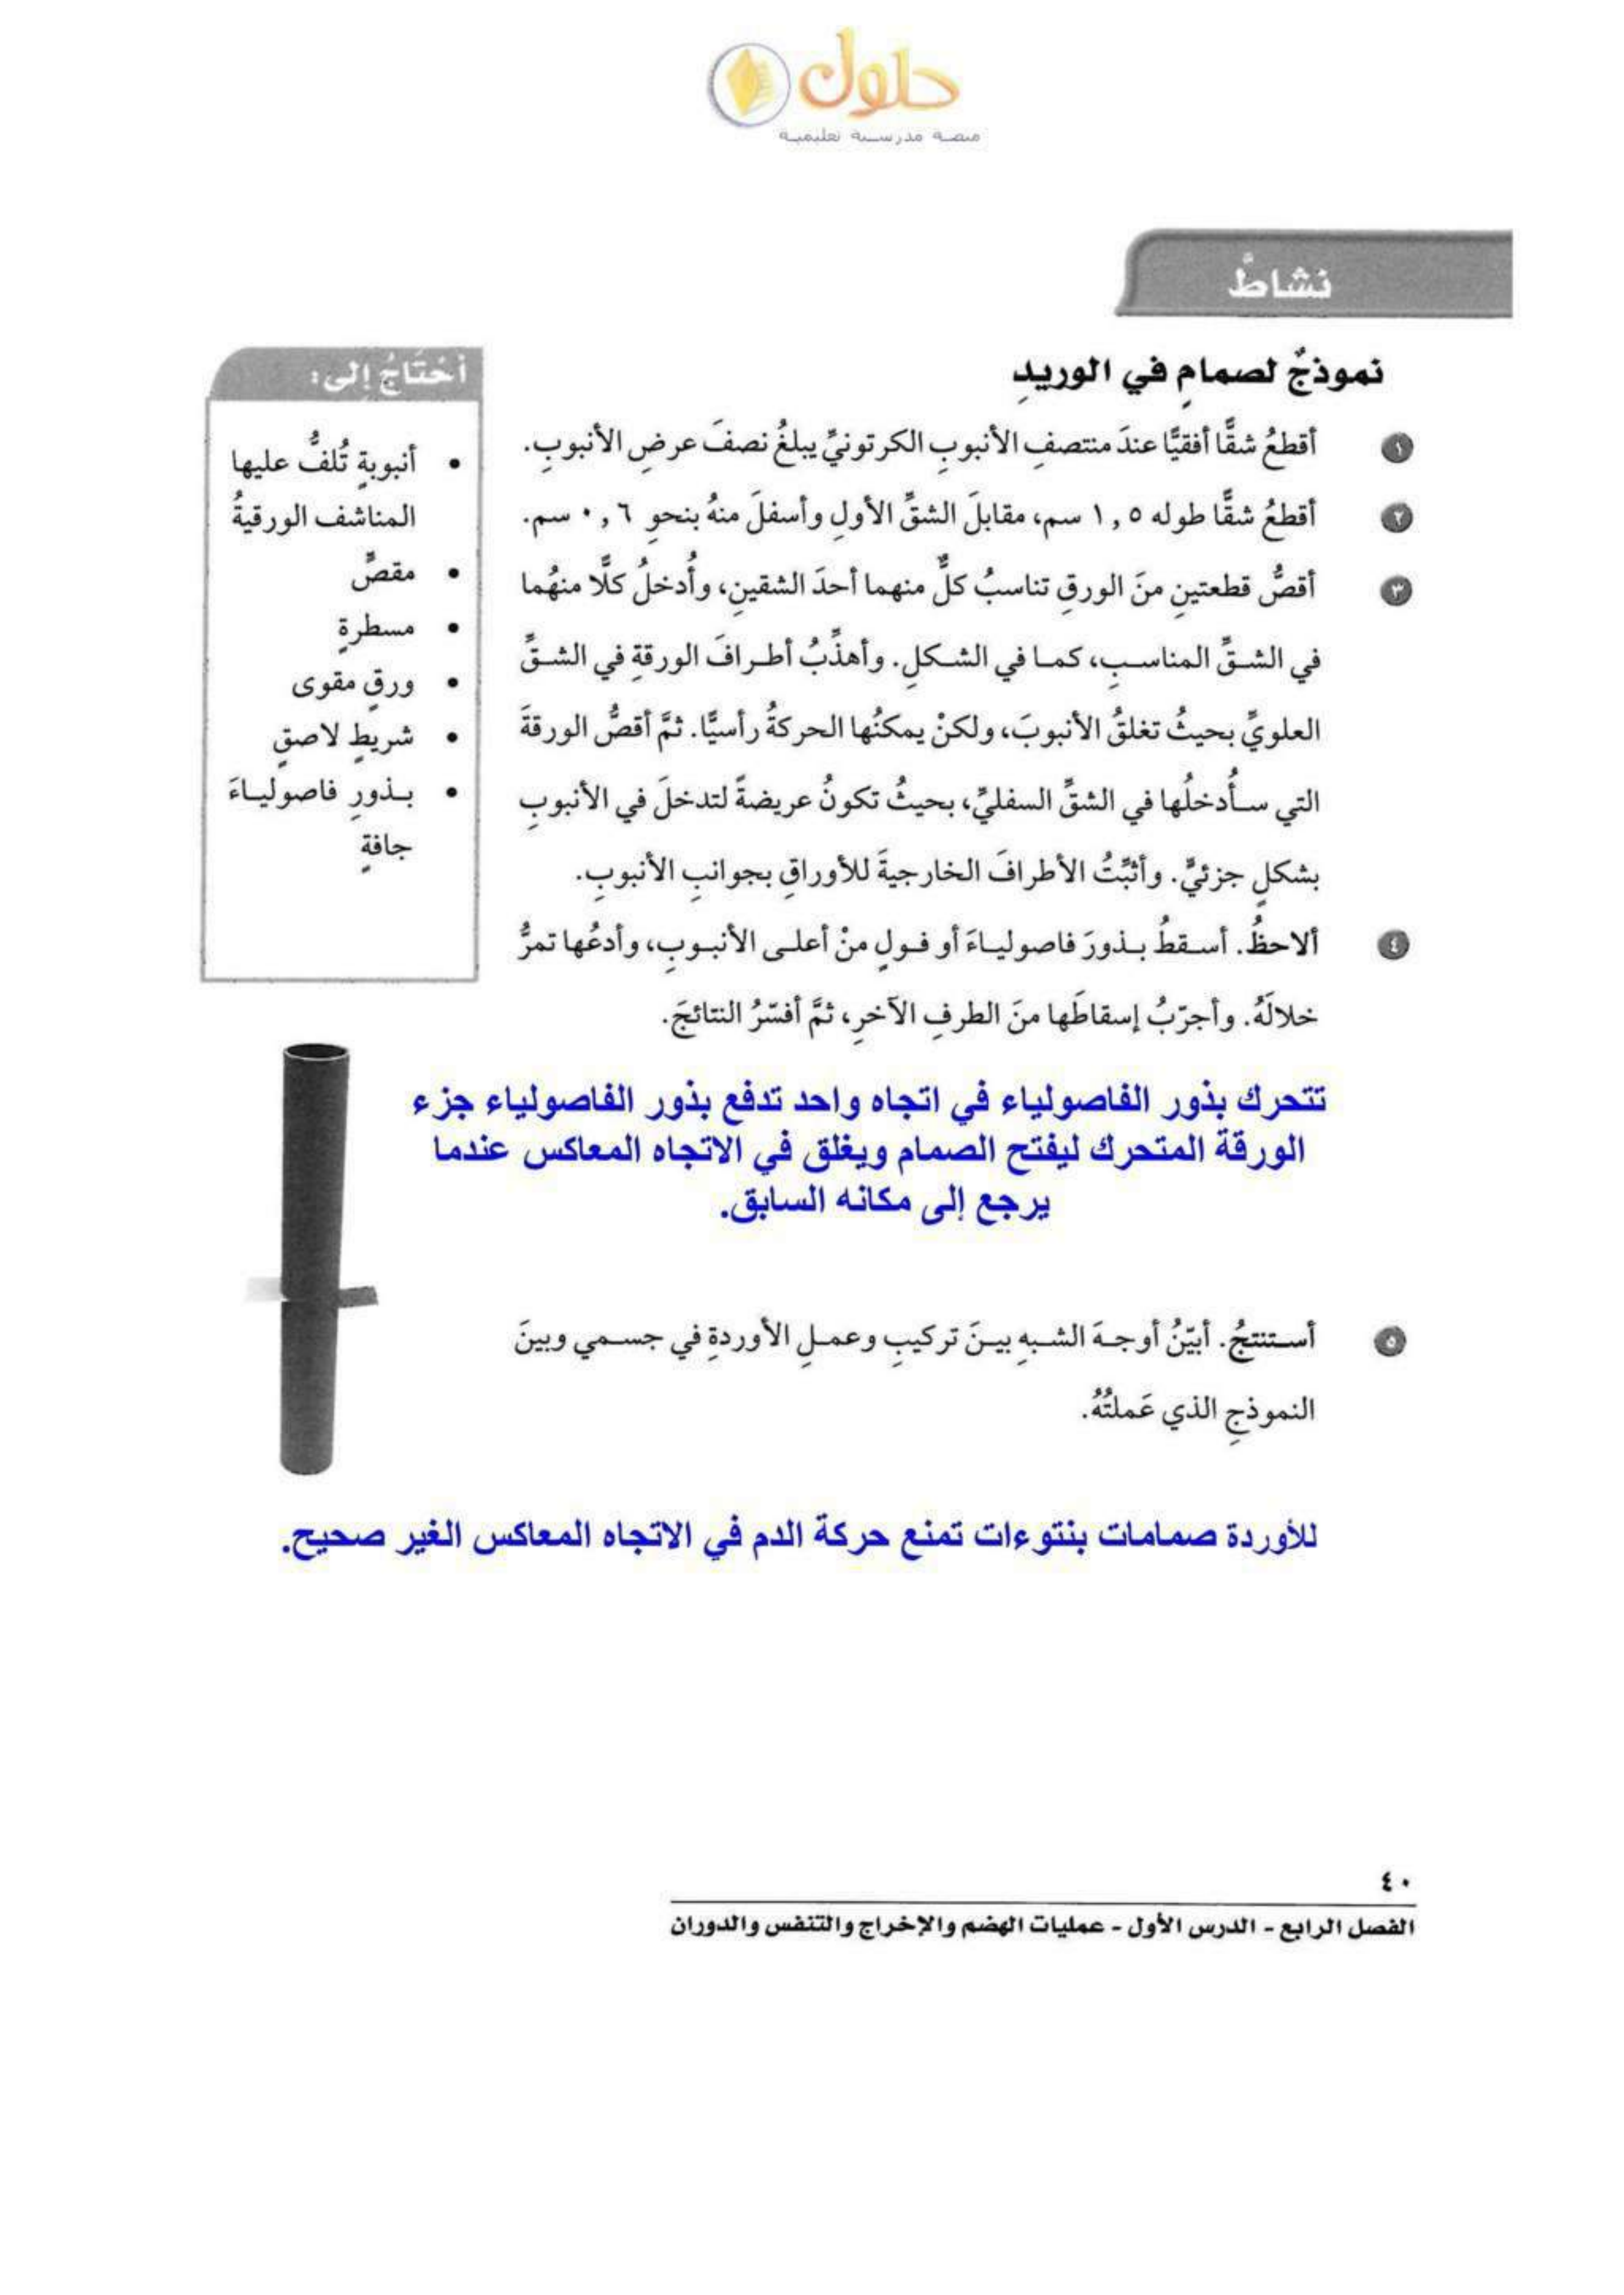 حلول
منصة مدرسية تعليمية
نشاطٌ
نموذجٌ لصمامٍ في الوريدِ
١ أقطعُ شقًّا أفقيًّا عندَ منتصفِ الأنبوبِ الكرتونيِّ يبلغُ نصفَ عرضِ الأنبوبِ.
٢ أقطعُ شقًّا طوله ١,٥ سم، مقابلَ الشقِّ الأولِ وأسفلَ منهُ بنحوِ ٠,٦ سم.
٣ أقصُّ قطعتينِ منَ الورقِ تناسبُ كلٌّ منهما أحدَ الشقينِ، وأُدخلُ كلًّا منهُما
في الشقِّ المناسبِ، كما في الشكلِ. وأهذِّبُ أطرافَ الورقةِ في الشقِّ
العلويِّ بحيثُ تغلقُ الأنبوبَ، ولكنْ يمكنُها الحركةُ رأسيًّا. ثمَّ أقصُّ الورقةَ
التي سأُدخلُها في الشقِّ السفليِّ، بحيثُ تكونُ عريضةً لتدخلَ في الأنبوبِ
بشكلٍ جزئيٍّ. وأثبِّتُ الأطرافَ الخارجيةَ للأوراقِ بجوانبِ الأنبوبِ.
٤ ألاحظُ. أسقطُ بذورَ فاصولياءَ أو فولٍ منْ أعلى الأنبوبِ، وأدعُها تمرُّ
خلالَهُ. وأجرّبُ إسقاطَها منَ الطرفِ الآخرِ، ثمَّ أفسّرُ النتائجَ.
تتحرك بذور الفاصولياء في اتجاه واحد تدفع بذور الفاصولياء جزء
الورقة المتحرك ليفتح الصمام ويغلق في الاتجاه المعاكس عندما
يرجع إلى مكانه السابق.
٥ أستنتجُ. أبيّنُ أوجهَ الشبهِ بينَ تركيبِ وعملِ الأوردةِ في جسمي وبينَ
النموذجِ الذي عَملتُهُ.
للأوردة صمامات بنتوءات تمنع حركة الدم في الاتجاه المعاكس الغير صحيح.
أحتَاجُ إلى:
• أنبوبةٍ تُلفُّ عليها
المناشف الورقيةُ
• مقصٍّ
• مسطرةٍ
• ورقٍ مقوى
• شريطٍ لاصقٍ
• بذورِ فاصولياءَ
جافةٍ
٤٠
الفصل الرابع - الدرس الأول - عمليات الهضم والإخراج والتنفس والدوران